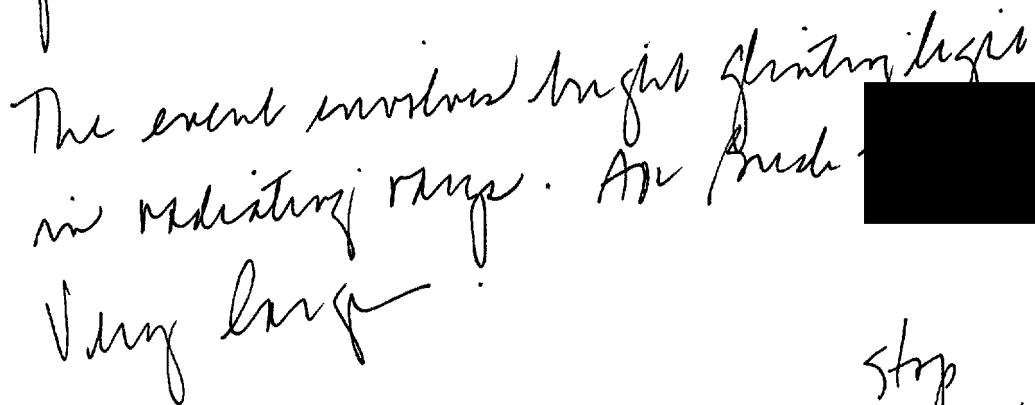 The event involves bright glinting light
in radiating rays. An
Very large.
stop